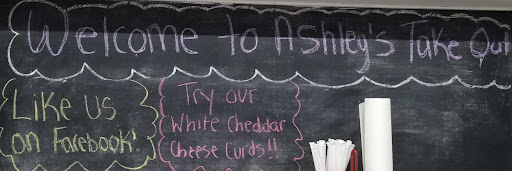 Welcome to Ashley's Take Out
Like us
on Facebook!
Try our
White Cheddar
Cheese Curds!!